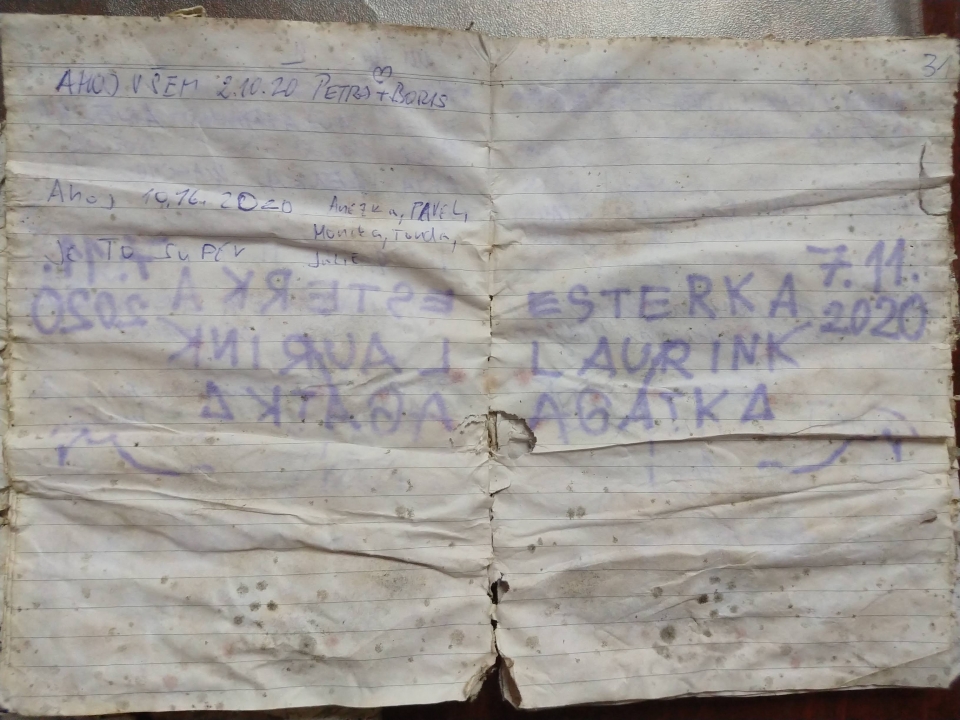 AHOJ VŠEM 2.10.20 PETRA + BORIS
Ahoj 10.16.2020 Anežka, PAVEL,
Monika, Tonda,
JE TO SUPER Julie
3
ESTERKA 7.11.
LAURINK 2020
AGÁTKA